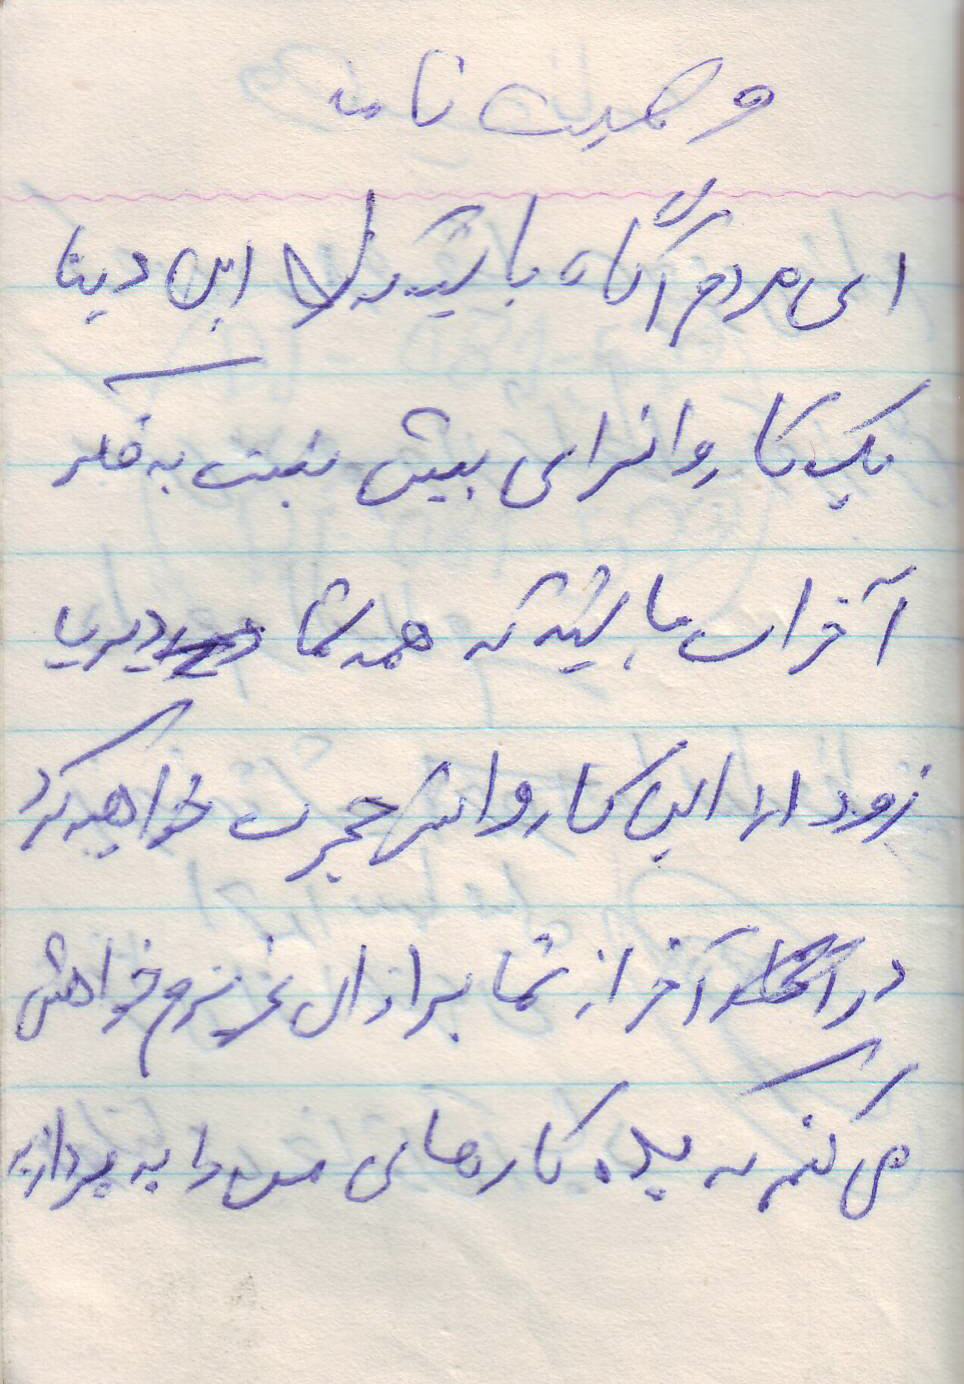 وصیت نامه
ای مردم آگاه باشید که این دینا
یک کاروانسرای بیش نیست به فکر
آخرت باشید که همه شما دیر یا
زود از این کاروانسر حجرت خواهید کرد
در آخر از شما برادران عزیزم خواهش
می کنم که بده کارهای من را به پردازید